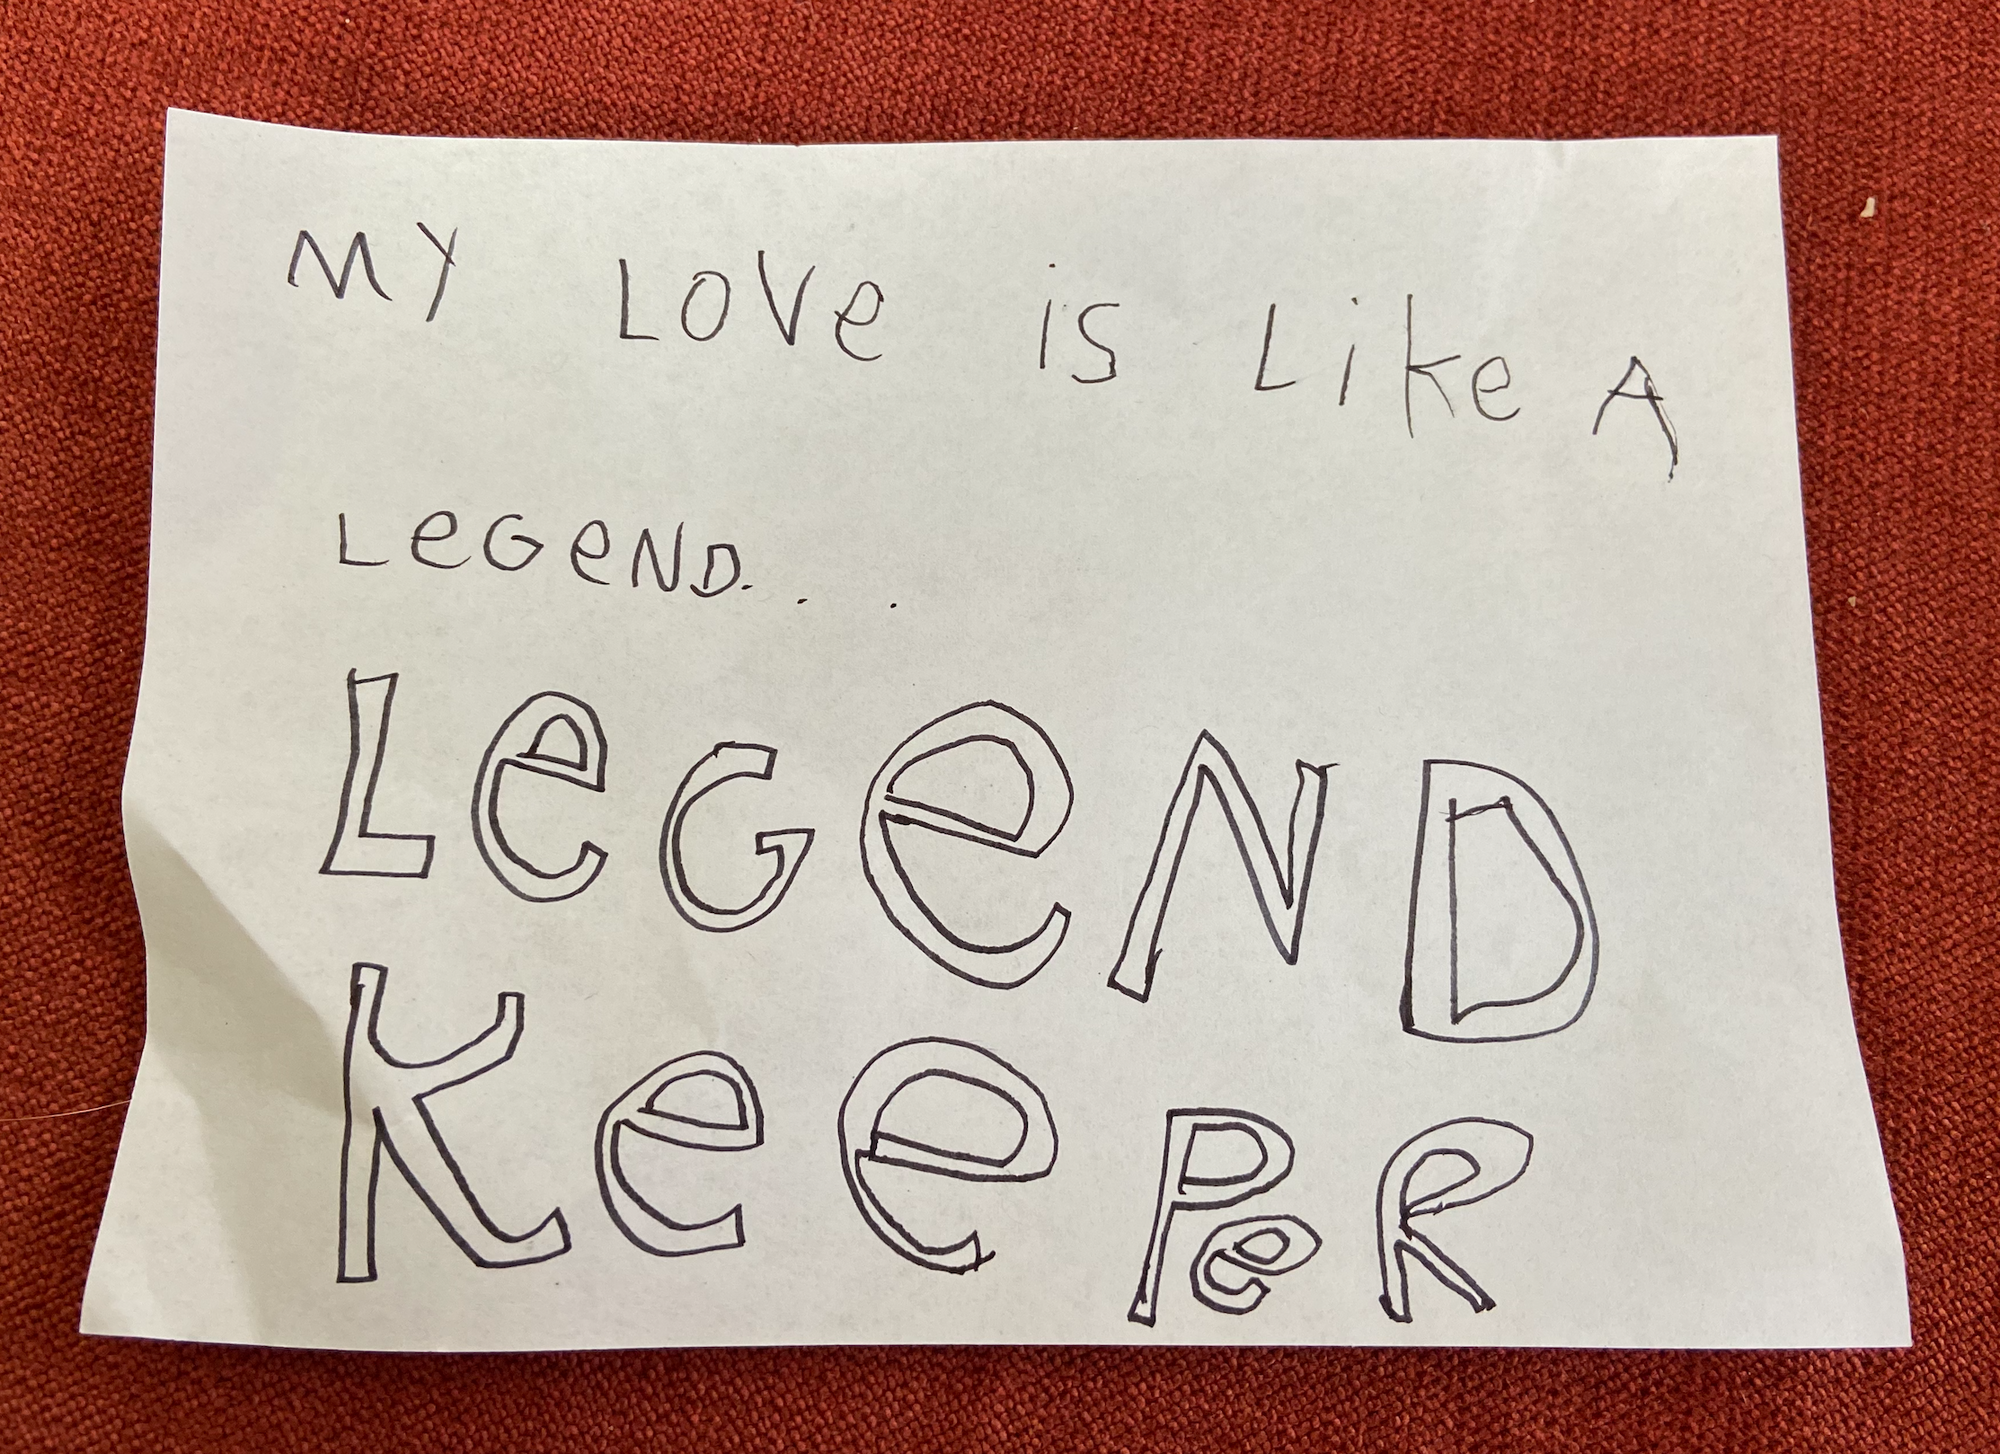 MY LOVe iS Like A
LeGeND...
LeGeND
KeePeR